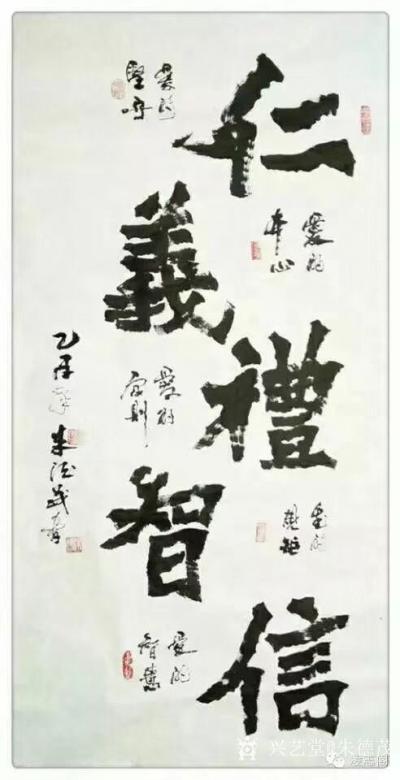 仁
愛的
本心
義
愛的
原則
禮
愛的
規矩
智
愛的
智慧
信
愛的
乙未年 朱德茂書
兴艺堂 朱德茂